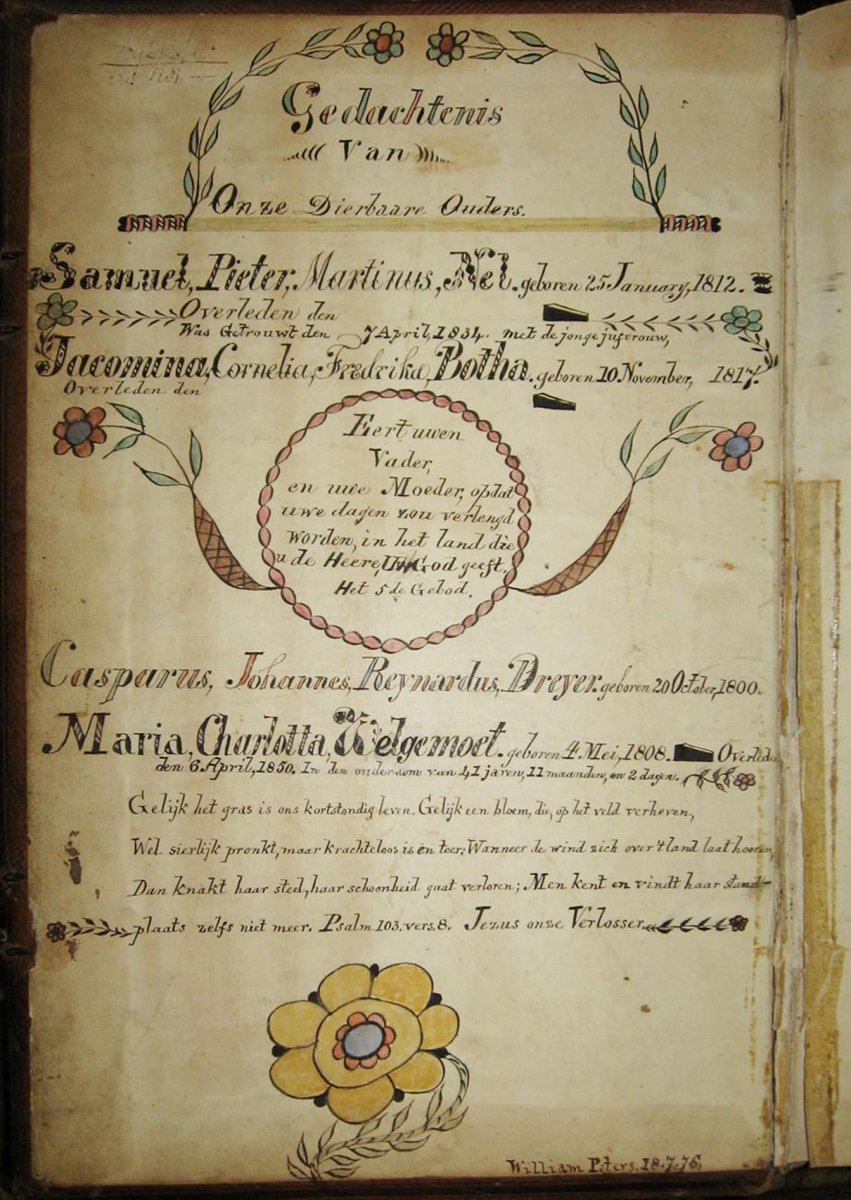 Gedachtenis
Van
Onze Dierbaare Ouders.
Samuel, Pieter, Martinus, Nel. geboren 25 January, 1812.
Overleden den
Was Getrouwt den 7 April, 1834. met de jonge jufvrouw,
Jacomina, Cornelia, Fredrika, Botha. geboren 10 November, 1817.
Overleden den
Eert uwen
Vader,
en uwe Moeder, opdat
uwe dagen zou verlengd
worden, in het land die
u de Heere, UW God geeft.
Het 5 de Gebod.
Casparus, Johannes, Reynardus, Dreyer. geboren 20 October, 1800.
Maria, Charlotta, Welgemoet. geboren 4 Mei, 1808. Overleden
den 6 April, 1850. In den ouderdom van 41 jaren, 11 maanden, en 2 dagen.
Gelijk het gras is ons kortstondig leven. Gelijk een bloem, die, op het veld verheven,
Wel sierlijk pronkt, maar krachteloos is en teer; Wanneer de wind zich over 't land laat hooren,
Dan knakt haar steel, haar schoonheid gaat verloren; Men kent en vindt haar stand-
plaats zelfs niet meer. Psalm 103. vers. 8. Jezus onze Verlosser.
William Peters. 18.7.76.